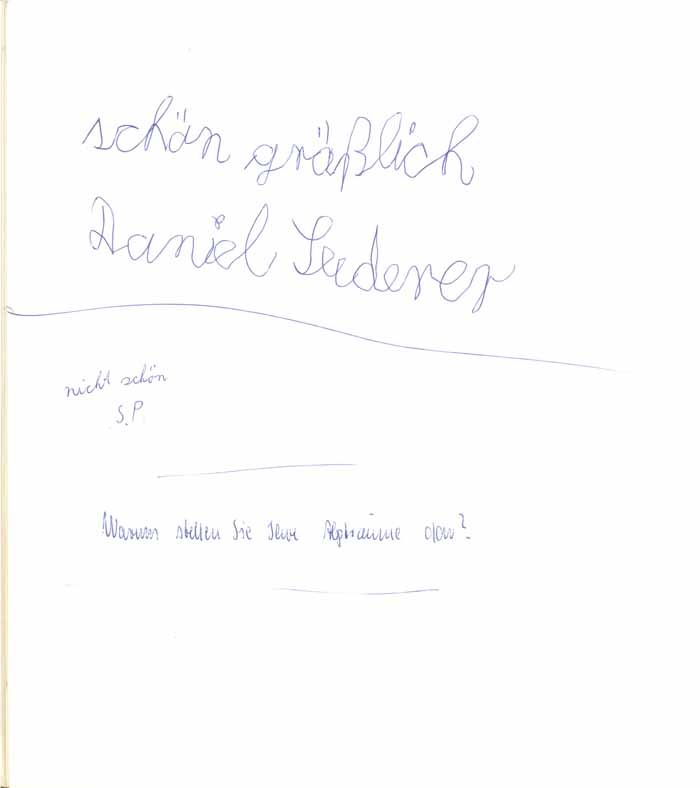 schön gräßlich
Daniel
nicht schön
S.P.
Warum stellen Sie Ihre Alpträume dar?